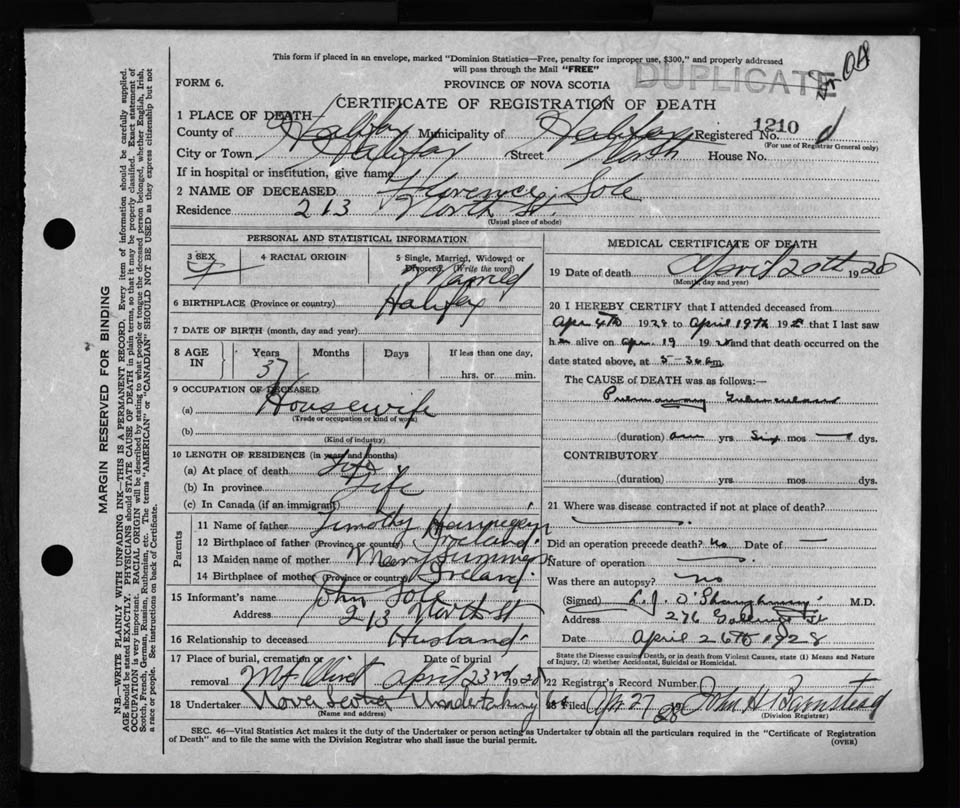 This form if placed in an envelope, marked "Dominion Statistics—Free, penalty for improper use, $300," and properly addressed
will pass through the Mail "FREE"
DUPLICATE
FORM 6.
PROVINCE OF NOVA SCOTIA
CERTIFICATE OF REGISTRATION OF DEATH
1 PLACE OF DEATH—
1210
County of Halifax Municipality of Halifax Registered No.
(For use of Registrar General only)
City or Town Halifax Street North House No.
If in hospital or institution, give name
2 NAME OF DECEASED Florence Sole
Residence 213 North St.
(Usual place of abode)
PERSONAL AND STATISTICAL INFORMATION
3 SEX F
4 RACIAL ORIGIN
5 Single, Married, Widowed or
Divorced (Write the word)
Married
6 BIRTHPLACE (Province or country) Halifax
7 DATE OF BIRTH (month, day and year)
8 AGE IN
Years Months Days If less than one day,
37
hrs. or min.
9 OCCUPATION OF DECEASED
(a) Housewife
(Trade or occupation or kind of work)
(b)
(Kind of industry)
10 LENGTH OF RESIDENCE (in years and months)
(a) At place of death Life
(b) In province Life
(c) In Canada (if an immigrant)
Parents
11 Name of father Timothy
12 Birthplace of father (Province or country) Ireland
13 Maiden name of mother Mary
14 Birthplace of mother (Province or country) Ireland
15 Informant's name John Sole
Address 213 North St
16 Relationship to deceased Husband
17 Place of burial, cremation or removal Mt Olivet
Date of burial April 23rd 1928
18 Undertaker Nova Scotia Undertaking
(Name and address)
MEDICAL CERTIFICATE OF DEATH
19 Date of death April 20th 1928
(Month, day and year)
20 I HEREBY CERTIFY that I attended deceased from
Apr 4th 1928 to April 19th 1928 that I last saw
h alive on Apr 19 1928 and that death occurred on the
date stated above, at 5-30 am.
The CAUSE of DEATH was as follows:—
Pulmonary Tuberculosis
(duration) one yrs Six mos — dys.
CONTRIBUTORY
(duration) yrs. mos. dys.
21 Where was disease contracted if not at place of death?
Did an operation precede death? No Date of —
Nature of operation
Was there an autopsy? no
(Signed) M.D.
Address 276 St
Date April 26th 1928
State the Disease causing Death, or in death from Violent Causes, state (1) Means and Nature
of Injury, (2) whether Accidental, Suicidal or Homicidal.
22 Registrar's Record Number
Filed Apr 27 28 John H
(Division Registrar)
SEC. 46—Vital Statistics Act makes it the duty of the Undertaker or person acting as Undertaker to obtain all the particulars required in the "Certificate of Registration
of Death" and to file the same with the Division Registrar who shall issue the burial permit.
(OVER)
MARGIN RESERVED FOR BINDING
N.B.—WRITE PLAINLY WITH UNFADING INK—THIS IS A PERMANENT RECORD. Every item of information should be carefully supplied.
AGE should be stated EXACTLY. PHYSICIANS should STATE CAUSE OF DEATH in plain terms, so that it may be properly classified. Exact statement of
OCCUPATION is very important. RACIAL ORIGIN will be described by stating to what people or tongue the deceased person belonged, whether English, Irish,
Scotch, French, German, Russian, Ruthenian, etc. The terms "AMERICAN" or "CANADIAN" SHOULD NOT BE USED as they express citizenship but not
a race or people. See instructions on back of Certificate.